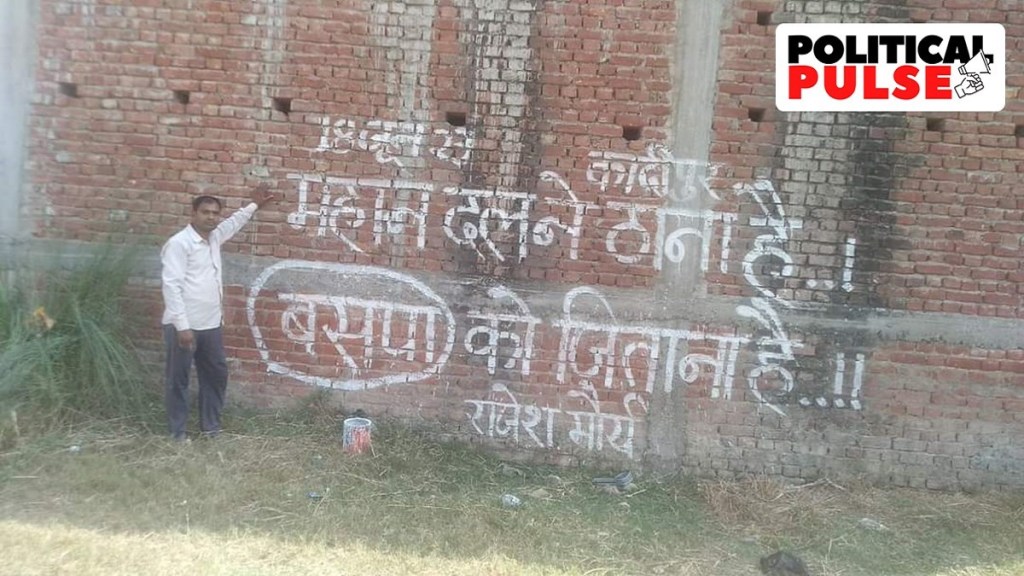 POLITICAL
PULSE
कादीपुर
महान दल ने ठाना है..!
बसपा को जिताना है..!!
राजेश मौर्य